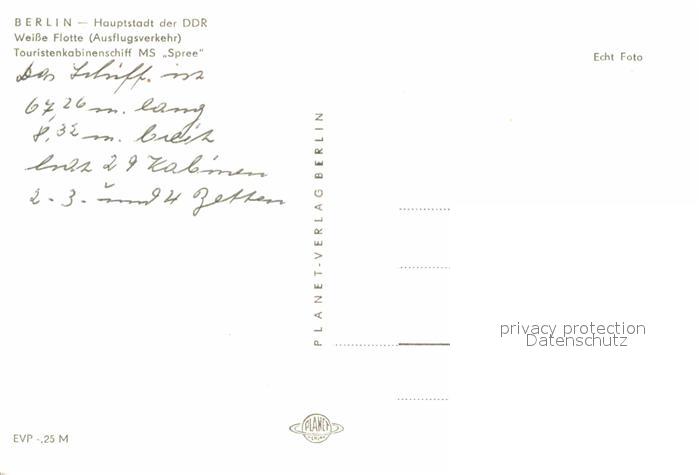 BERLIN — Hauptstadt der DDR
Weiße Flotte (Ausflugsverkehr)
Touristenkabinenschiff MS „Spree“
Das Schiff. ist
67,26 m. lang
8,32 m. breit
hat 29 Kabinen
2 - 3 - und 4 Betten
PLANET-VERLAG BERLIN
Echt Foto
privacy protection
Datenschutz
PLANET
VERLAG
EVP -,25 M